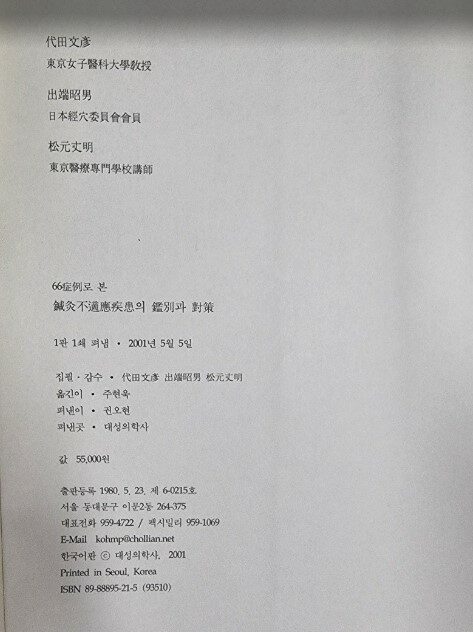 代田文彦
東京女子醫科大學敎授
出端昭男
日本經穴委員會會員
松元丈明
東京醫療專門學校講師
66症例로 본
鍼灸不適應疾患의 鑑別과 對策
1판 1쇄 펴냄 • 2001년 5월 5일
집필 · 감수 • 代田文彦 出端昭男 松元丈明
옮긴이 • 주현욱
펴낸이 • 권오현
펴낸곳 • 대성의학사
값 55,000원
출판등록 1980. 5. 23. 제 6-0215호
서울 동대문구 이문2동 264-375
대표전화 959-4722 / 팩시밀리 959-1069
E-Mail kohmp@chollian.net
한국어판 ⓒ 대성의학사, 2001
Printed in Seoul, Korea
ISBN 89-88895-21-5 (93510)